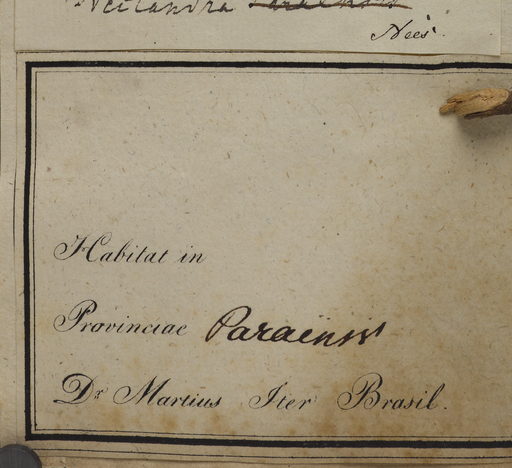 Nectandra paraensis
Nees.
Habitat in
Provinciae Paraensis
Dr Martius Iter Brasil.